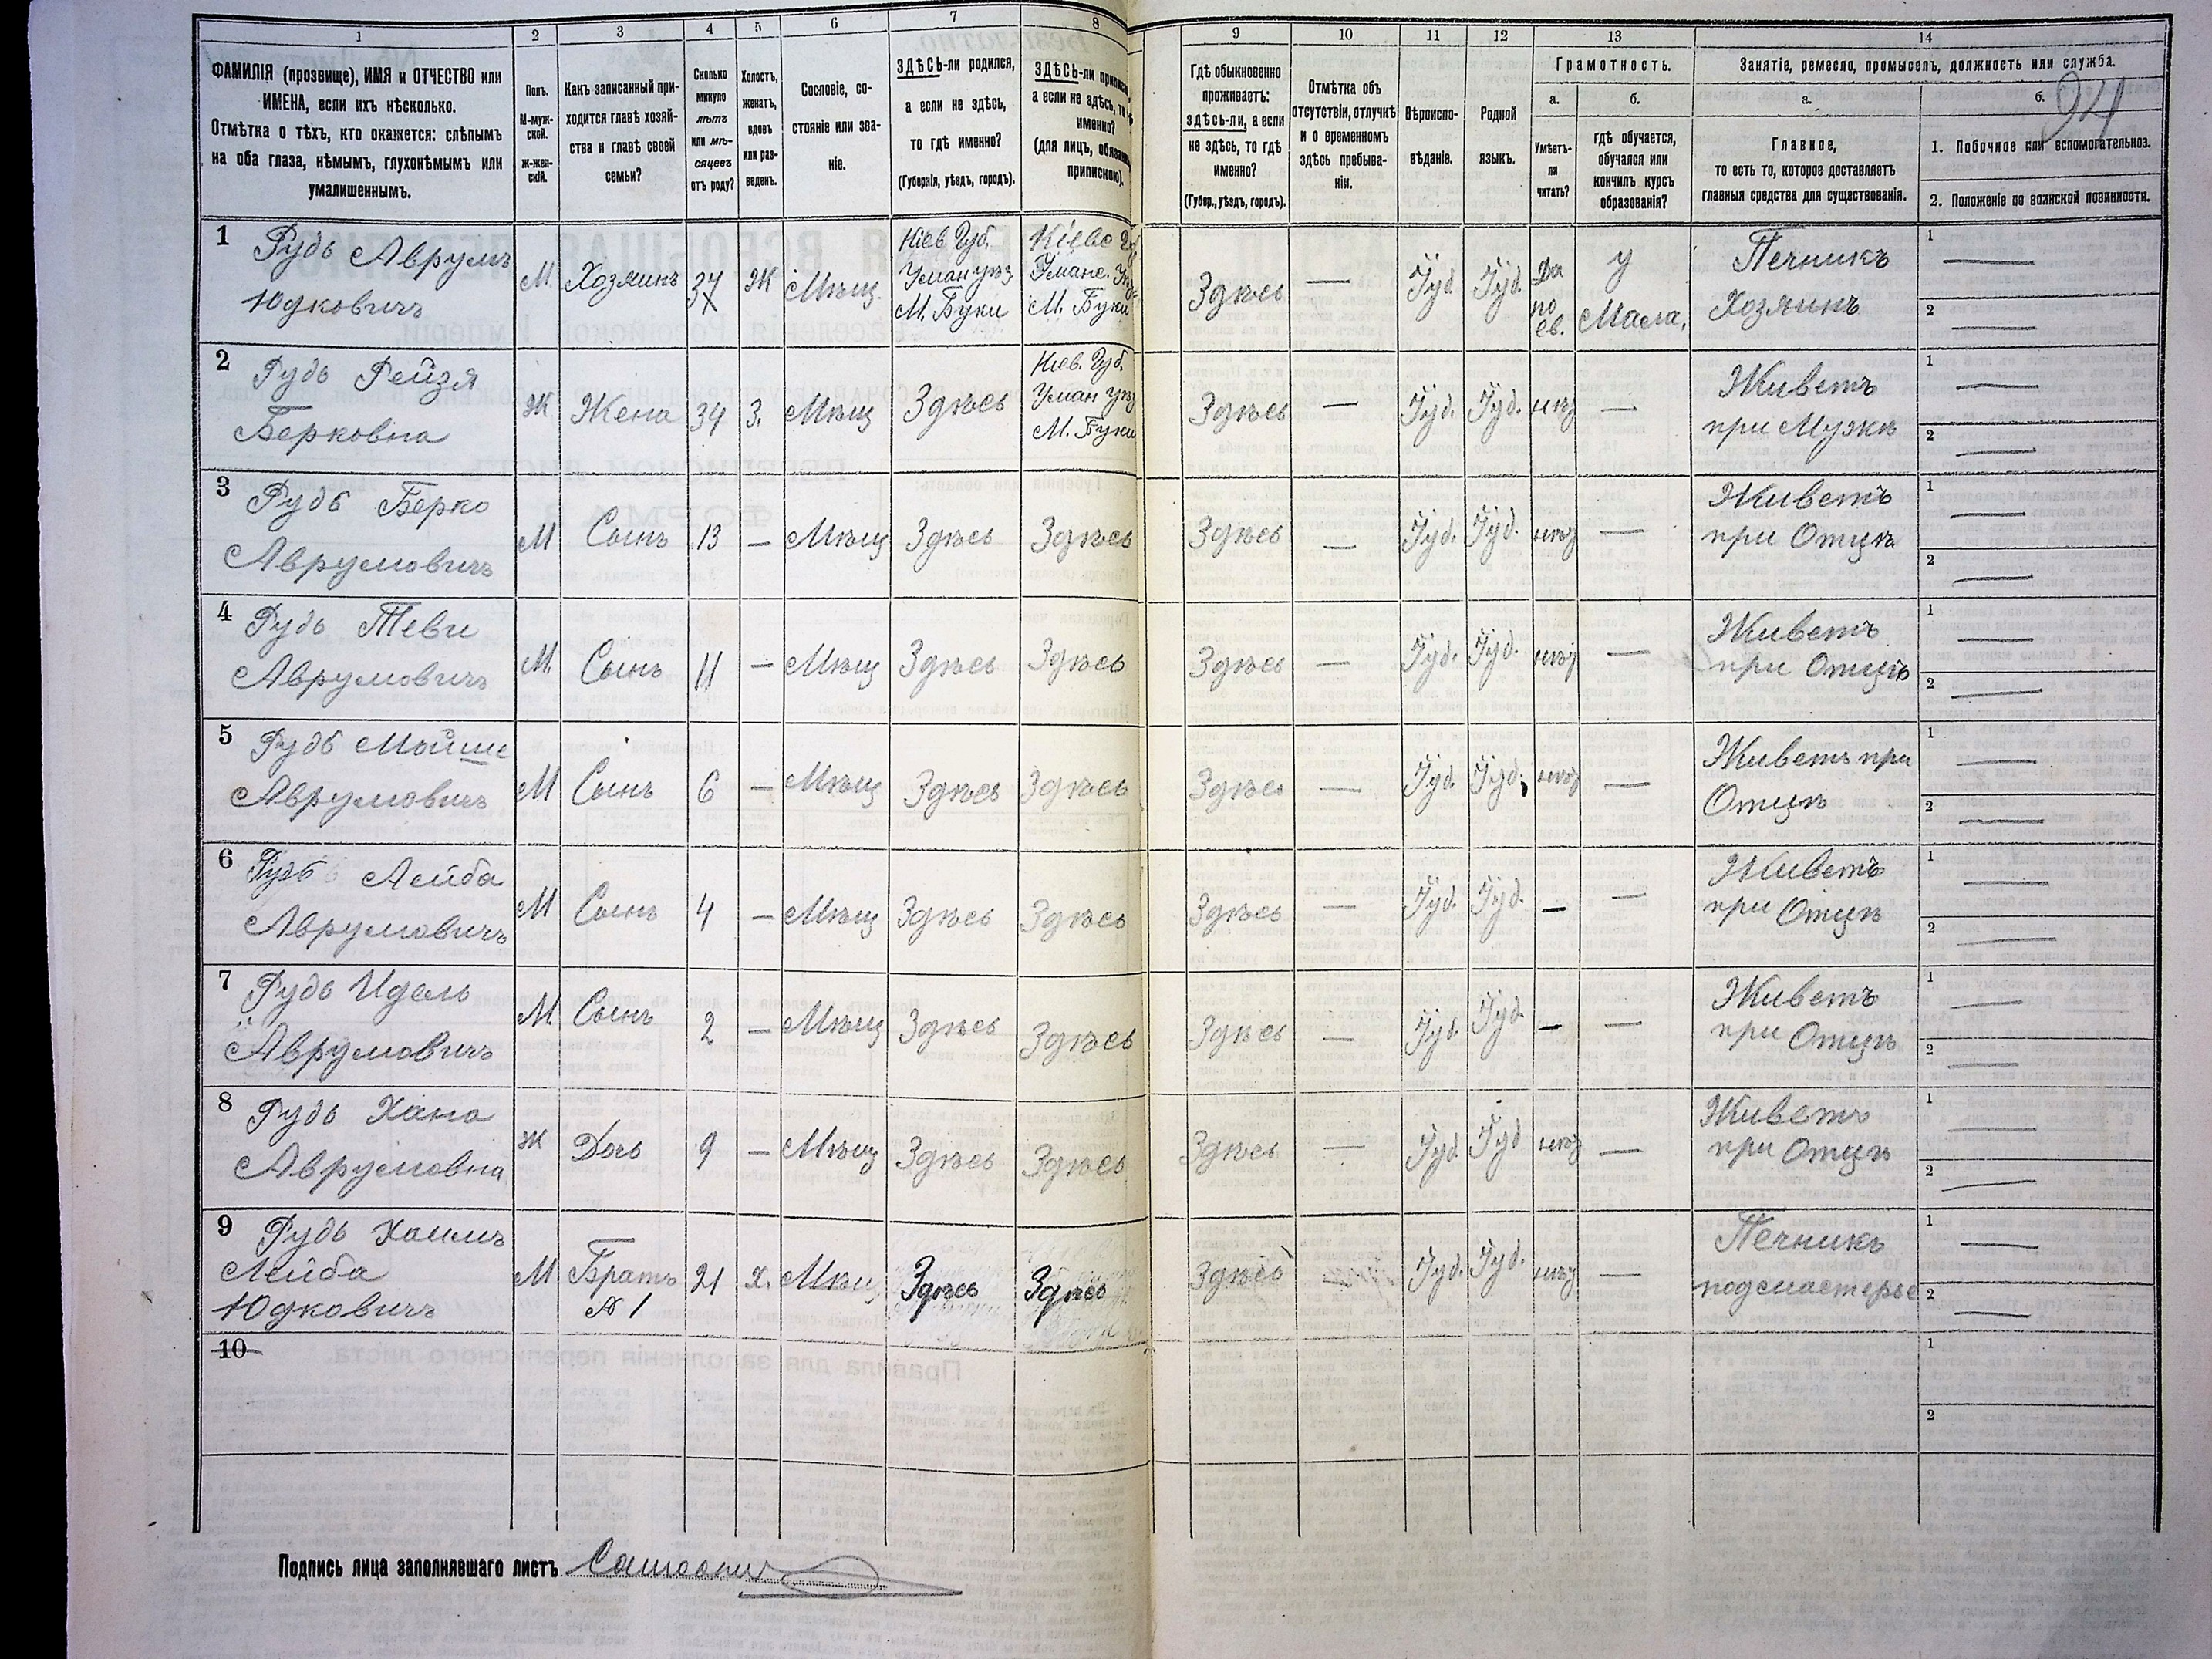 1
2
3
4
5
6
7
8
9
10
11
12
13
14
ФАМИЛІЯ (прозвище), ИМЯ и ОТЧЕСТВО или
ИМЕНА, если ихъ нѣсколько.
Отмѣтка о тѣхъ, кто окажется: слѣпымъ
на оба глаза, нѣмымъ, глухонѣмымъ или
умалишеннымъ.
Полъ.
М-муж-
ской.
Ж-жен-
скій.
Какъ записанный при-
ходится главѣ хозяй-
ства и главѣ своей
семьи?
Сколько
минуло
лѣтъ
или мѣ-
сяцевъ
отъ роду?
Холостъ,
женатъ,
вдовъ
или раз-
веденъ.
Сословіе, со-
стояніе или зва-
ніе.
ЗДѢСЬ-ли родился,
а если не здѣсь,
то гдѣ именно?
(Губернія, уѣздъ, городъ).
ЗДѢСЬ-ли
а если не здѣсь,
именно?
(для лицъ,
припискою).
Гдѣ обыкновенно
проживаетъ:
здѣсь-ли, а если
не здѣсь, то гдѣ
именно?
(Губер., уѣздъ, городъ).
Отмѣтка объ
отсутствіи, отлучкѣ
и о временномъ
здѣсь пребыва-
ніи.
Вѣроиспо-
вѣданіе.
Родной
языкъ.
Грамотность.
а.
б.
Умѣетъ-
ли
читать?
гдѣ обучается,
обучался или
кончилъ курсъ
образованія?
Занятіе, ремесло, промыселъ, должность или служба.
а.
б.
94
Главное,
то есть то, которое доставляетъ
главныя средства для существованія.
1. Побочное или вспомогательное.
2. Положеніе по воинской повинности.
1
Рудь Аврумъ
Юдковичъ
М.
Хозяинъ
37
Ж
Мѣщ.
Кіев. Губ.
Уман уѣз
М. Буки
Кіевс
Уманс.
М. Буки
Здѣсь
—
Іуд.
Іуд.
Да
по
ев.
У
Мала.
Печникъ
Хозяинъ
1 —
2 —
2
Рудь Рейзя
Берковна
Ж
Жена
34
З.
Мѣщ
Здѣсь
Кіев. Губ.
Уман уѣз
М. Буки
Здѣсь
—
Іуд.
Іуд.
нѣт
—
Живетъ
при Мужѣ
1 —
2 —
3
Рудь Берко
Аврумовичъ
М
Сынъ
13
—
Мѣщ
Здѣсь
Здѣсь
Здѣсь
—
Іуд.
Іуд.
нѣт
—
Живетъ
при Отцѣ
1 —
2 —
4
Рудь Теви
Аврумовичъ
М.
Сынъ
11
—
Мѣщ
Здѣсь
Здѣсь
Здѣсь
—
Іуд.
Іуд.
нѣт
—
Живетъ
при Отцѣ
1 —
2 —
5
Рудь Мойше
Аврумовичъ
М
Сынъ
6
—
Мѣщ
Здѣсь
Здѣсь
Здѣсь
—
Іуд.
Іуд.
нѣт
—
Живетъ при
Отцѣ
1 —
2 —
6
Рудь Лейба
Аврумовичъ
М
Сынъ
4
—
Мѣщ
Здѣсь
Здѣсь
Здѣсь
—
Іуд.
Іуд.
—
—
Живетъ
при Отцѣ
1 —
2 —
7
Рудь Идель
Аврумовичъ
М
Сынъ
2
—
Мѣщ
Здѣсь
Здѣсь
Здѣсь
—
Іуд.
Іуд.
—
—
Живетъ
при Отцѣ
1 —
2 —
8
Рудь Хана
Аврумовна
Ж
Дочь
9
—
Мѣщ
Здѣсь
Здѣсь
Здѣсь
—
Іуд
Іуд
нѣт
—
Живетъ
при Отцѣ
1 —
2 —
9
Рудь Хаимъ
Лейба
Юдковичъ
М
Братъ
№ 1
21
Х.
Мѣщ
Здѣсь
Здѣсь
Здѣсь
Іуд.
Іуд.
нѣт
—
Печникъ
подмастерье
1 —
2 —
10
1
2
Подпись лица заполнявшаго листъ